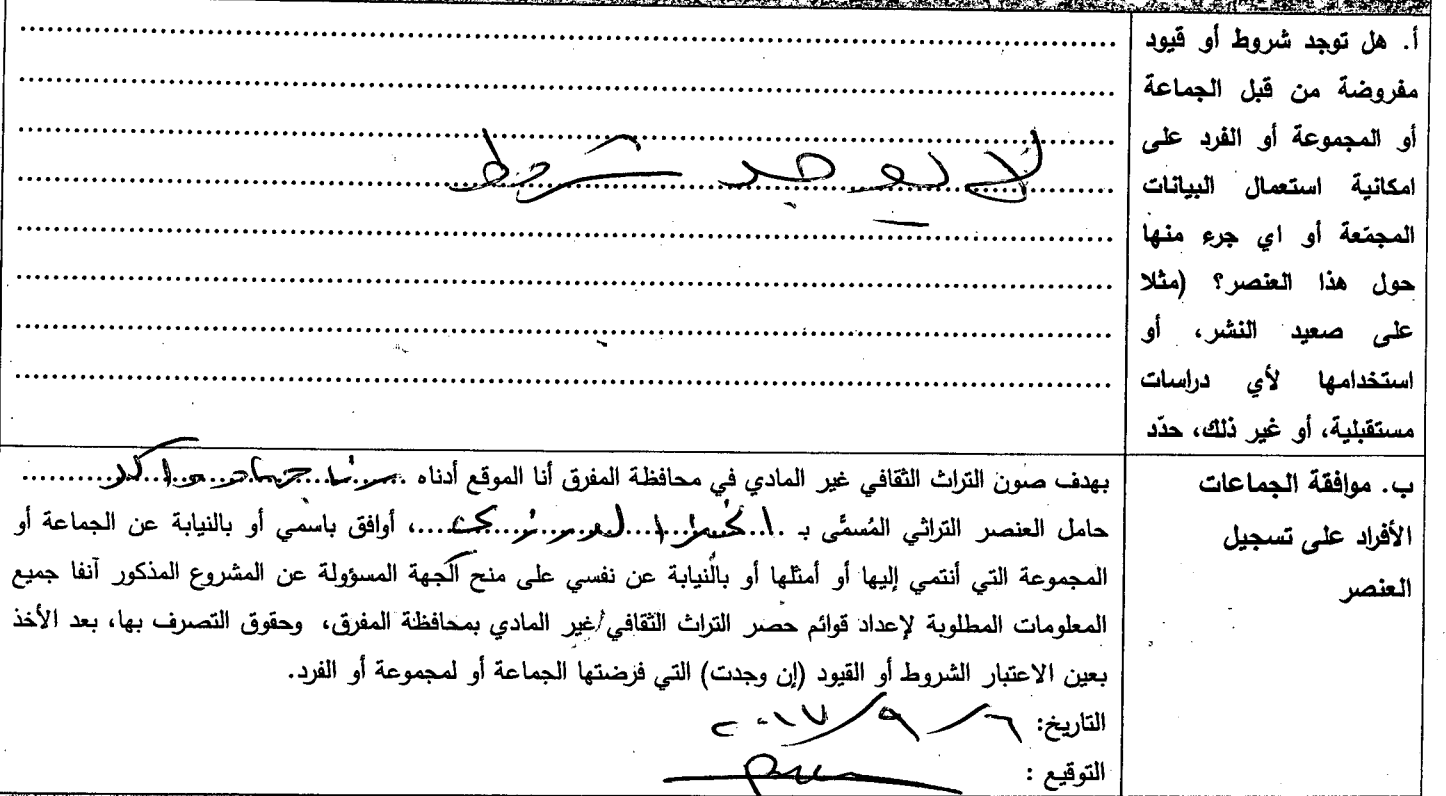 أ. هل توجد شروط أو قيود
مفروضة من قبل الجماعة
أو المجموعة أو الفرد على
امكانية استعمال البيانات
المجمّعة أو اي جرء منها
حول هذا العنصر؟ (مثلا
على صعيد النشر، أو
استخدامها لأي دراسات
مستقبلية، أو غير ذلك، حدّد
لا يوجد شروط
ب. موافقة الجماعات
الأفراد على تسجيل
العنصر
بهدف صون التراث الثقافي غير المادي في محافظة المفرق أنا الموقع أدناه
حامل العنصر التراثي المُسمَّى بـ ، أوافق باسمي أو بالنيابة عن الجماعة أو
المجموعة التي أنتمي إليها أو أمثلها أو بالنيابة عن نفسي على منح الجهة المسؤولة عن المشروع المذكور آنفا جميع
المعلومات المطلوبة لإعداد قوائم حصر التراث الثقافي/غير المادي بمحافظة المفرق، وحقوق التصرف بها، بعد الأخذ
بعين الاعتبار الشروط أو القيود (إن وجدت) التي فرضتها الجماعة أو لمجموعة أو الفرد.
التاريخ: ٦/٩/٢٠١٧
التوقيع :